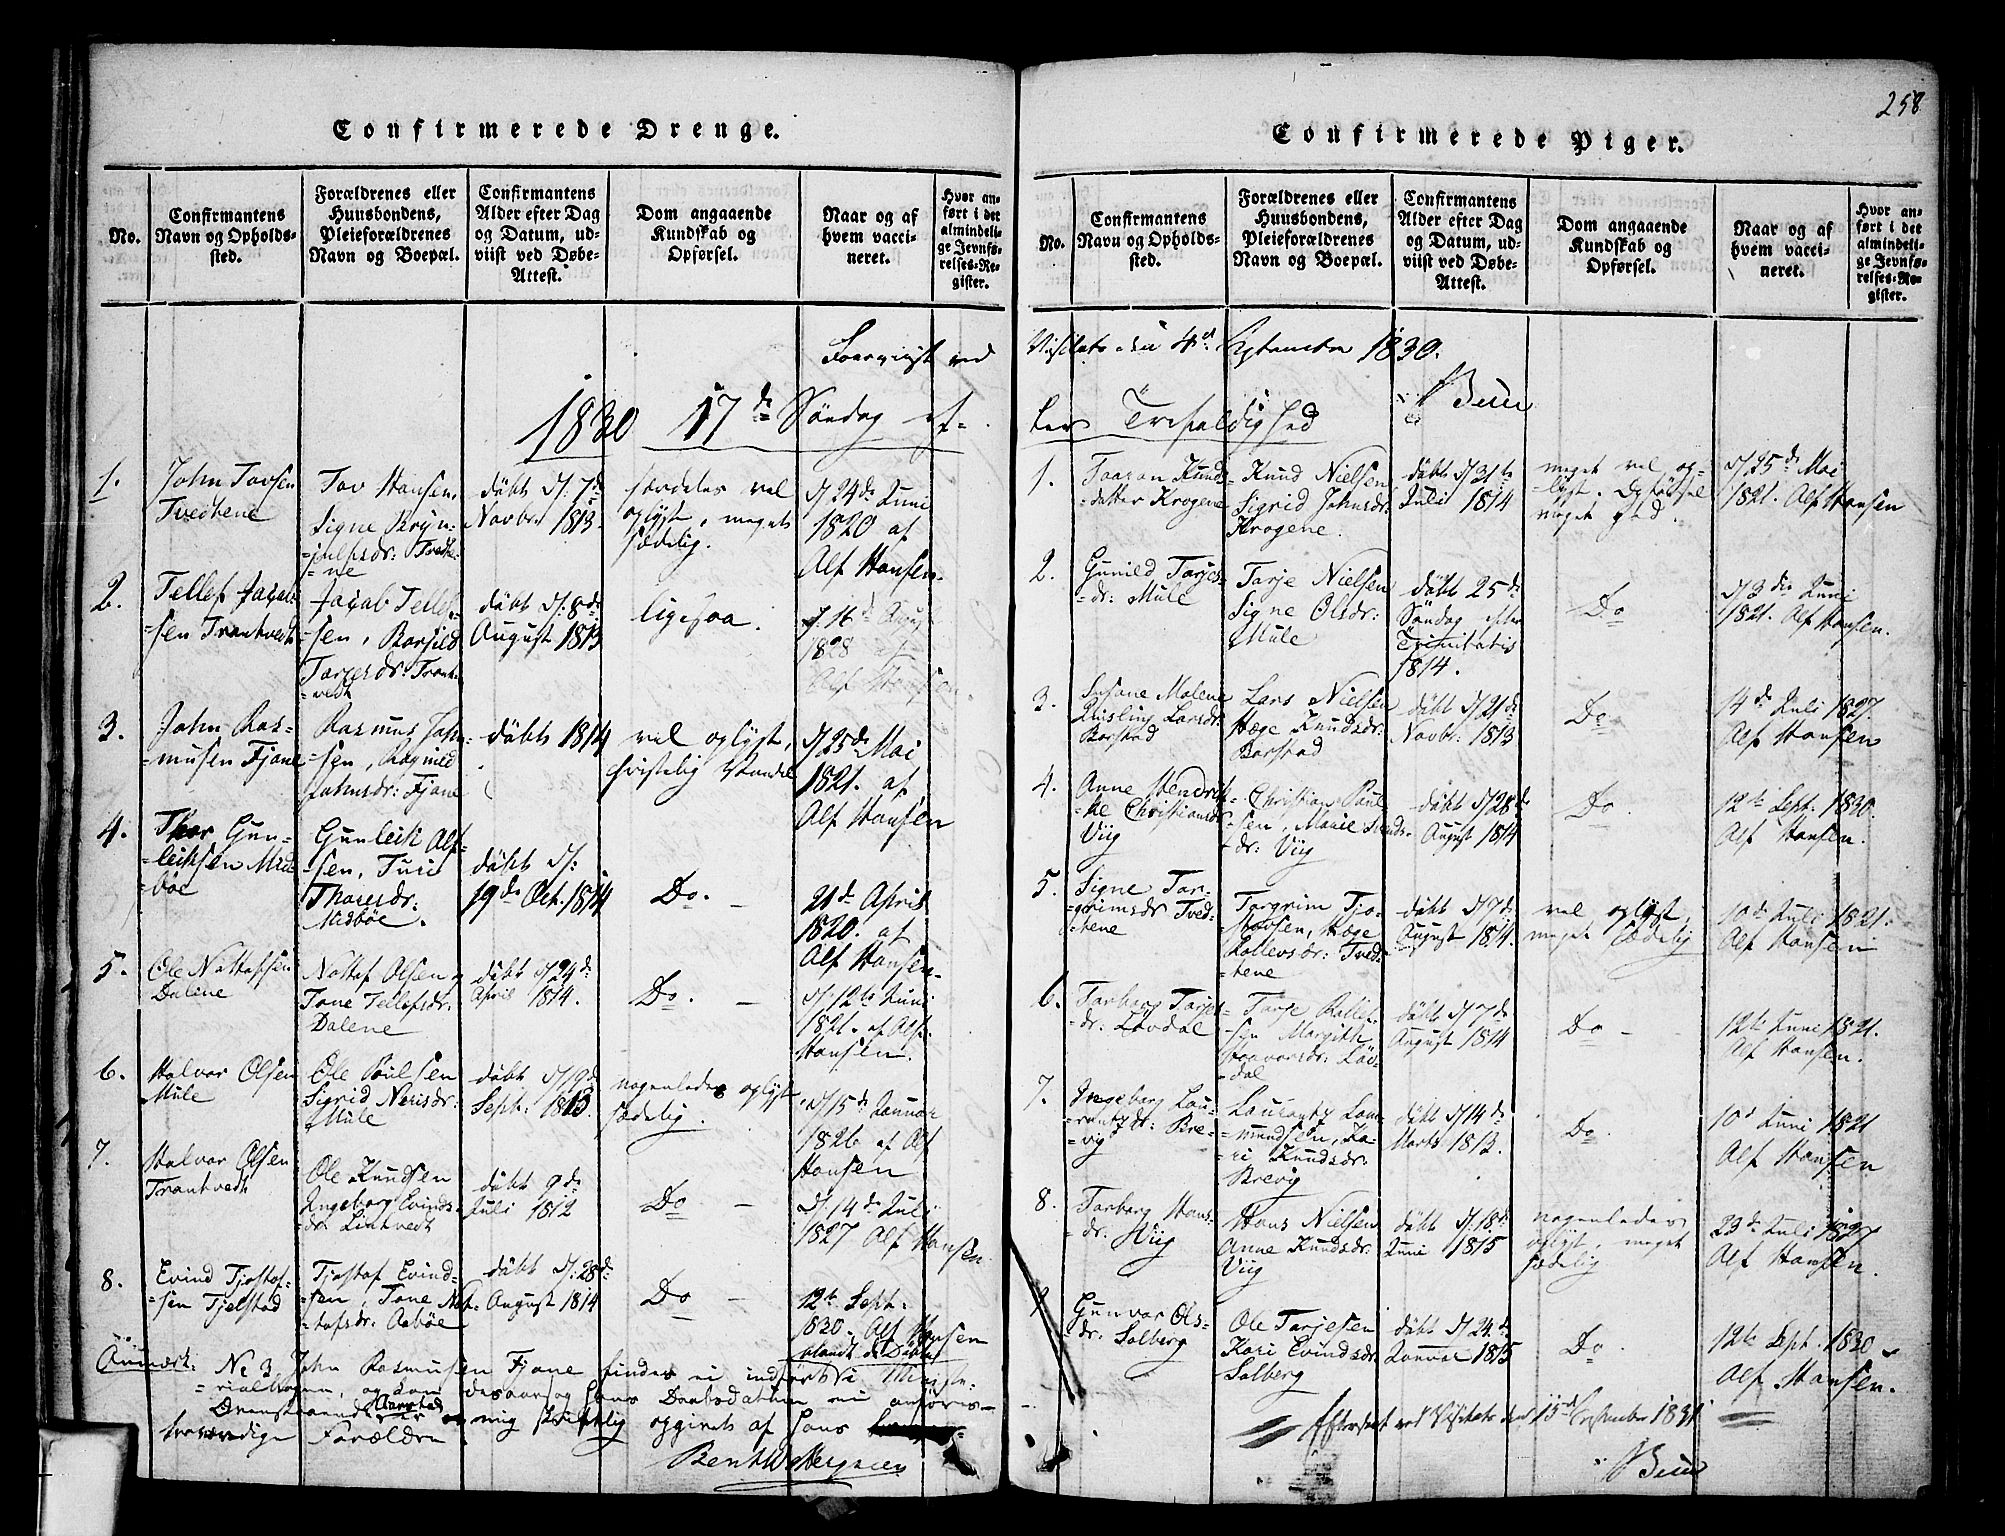 Confirmerede Drenge.
No.
Confirmantens
Navn og Opholds-
sted.
Forældrenes eller
Huusbondens,
Pleieforældrenes
Navn og Boepæl.
Confirmantens
Alder efter Dag
og Datum, ud-
viist ved Døbe-
Attest.
Dom angaaende
Kundskab og
Opførsel.
Naar og af
hvem vacci-
neret.
Hvor an-
ført i det
almindeli-
ge Jevnfø-
relses-Re-
gister.
1830 17de Søndag ef-
1.
John Tovsen
Tvedtene
Tov Hansen,
Signe Bryn-
=julfsdr: Tvedte-
=ne
døbt d: 7de
Novbr: 1813
særdeles vel
oplyst, meget
sædelig.
d 24de Juni
1820 af
Alf Hansen.
2.
Tellef Jacob-
=sen Trantvedt
Jacob Tellef-
=sen, Borgild
Tarjesdr: Trant-
=vedt
døbt d: 8de
August 1813
ligesaa.
d. 16de August
Alf Hansen.
3.
John Ras-
=musen Fjane
Rasmus John-
=sen, Ragnild
Johnsdr: Fjane
døbt 1814
vel oplyst,
christelig Vandel
d 25de Mai
1821. af
Alf Hansen
4.
Thor Gun-
=leiksen Mid-
=bøe
Gunleik Alf-
=sen, Turi
Thoresdr:
Midbøe.
døbt d:
19de Oct. 1814
Do. —
21de April
1820. af
Alf Hansen.
5.
Ole Nottolfsen
Dalene
Nottof Olsen
Tone Tellefsdr.
Dalene
døbt d 24de
April 1814.
Do. —
d: 12te Juni
1821. af Alf
Hansen.
6.
Halvor Olsen
Mule
Ole Poulsen
Sigrid Nerisdr:
Mule
døbt d 19de
Sept: 1813.
nogenledes oplyst
sædelig.
d 15de Januar
1826 af Alf
Hansen
7.
Halvor Olsen
Trantvedt
Ole Knudsen
Ingeborg Evinds-
=dr: Lintvedt
døbt 9de
Juli 1812
Do —
d: 14de Juli
1827 Alf Hansen.
8.
Evind Tjostof-
=sen Tjelstad
Tjostof Evind-
=sen, Tone Not-
=tofsdr: Aabøe
døbt d: 28de
August 1814
Do —
12te Sept:
1830. Alf Hansen
blandt de Døbte
Anmærk: No 3 John Rasmusen Fjane findes ei indført i Mini-
Forældre mig skriftlig opgivet af hans
258
Confirmerede Piger.
No.
Confirmantens
Navn og Opholds-
sted.
Forældrenes eller
Huusbondens,
Pleieforældrenes
Navn og Boepæl.
Confirmantens
Alder efter Dag
og Datum, ud-
viist ved Døbe-
Attest.
Dom angaaende
Kundskab og
Opførsel.
Naar og af
hvem vacci-
neret.
Hvor an-
ført i det
almindeli-
ge Jevnfø-
relses-Re-
gister.
Visitats den 4de September 1830.
ter Trefoldighed
1.
Taaran Knuds-
=datter Krogene
Knud Nielsen
Sigrid Johnsdr:
Krogene.
døbt d 31te
Juli 1814
meget vel op-
=lyst. Opførsel
meget god.
d 25de Mai
1821. Alf Hansen
2.
Gunild Tarjes-
=dr: Mule
Tarje Nielsen
Signe Olsdr:
Mule
døbt 25de
Søndag efter
Trinitatis
1814.
Do
d 3die Juni
1821. Alf Hansen.
3.
Susane Malene
Larsdr:
Borstad
Lars Nielsen
Hæge Knudsdr:
Borstad
døbt d 21de
Novbr: 1813
Do
14de Juli 1827.
Alf Hansen
4.
Anne Hendrik-
=ke Christiansdr
Viig
Christian Poul-
=sen, Marie
=dr: Viig
døbt d 28de
August 1814
Do.
12te Sept. 1830.
Alf Hansen.
5.
Signe Tor-
=grimsdr Tved-
=tene
Torgrim Tjo-
=stovsen, Hæge
Rollevsdr: Tved-
=tene
døbt d 7de
August 1814.
vel oplyst,
meget sædelig
10de Juli 1821.
Alf Hansen
6.
Torborg Tarjes-
=dr: Lovdal
Tarje Rollef-
=sen Margith
Haavorsdr: Lov-
=dal
døbt d 7de
August 1814
Do —
12te Juni 1821.
Alf Hansen.
7.
Ingeborg Lau-
=rantzdr: Bre-
=vig
Laurantz Lau-
=mundsen, Ka-
=ri Knudsdr:
Brevig
døbt d 14de
Marts 1813.
Do.
10de Juni 1821
Alf Hansen
8.
Torborg Hans-
=dr: Viig
Hans Nielsen
Anne Knudsdr:
Viig
døbt d: 18de
Juni 1815
nogenledes
oplyst, meget
sædelig
23de Juli 1827
Alf Hansen.
9
Gunvor Ols-
=dr: Solberg
Ole Tarjesen
Kari Evindsdr:
Solberg
døbt d 24de
Januar 1815
Do
12te Sept. 1830
Alf Hansen.
Efterseet ved Visitats den 15de September 1831